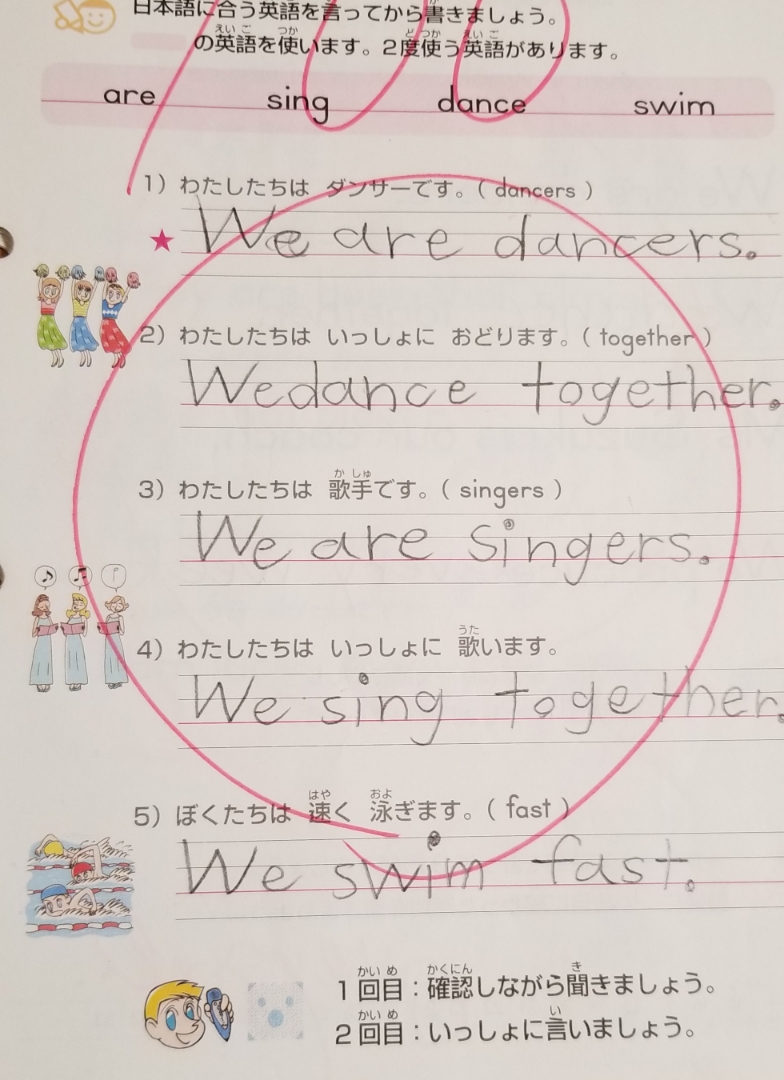 日本語に合う英語を言ってから書きましょう。
の英語を使います。2度使う英語があります。
are sing dance swim
1) わたしたちは ダンサーです。( dancers )
★ We are dancers.
2) わたしたちは いっしょに おどります。( together )
We dance together.
3) わたしたちは 歌手です。( singers )
We are singers.
4) わたしたちは いっしょに 歌います。
We sing together.
5) ぼくたちは 速く 泳ぎます。( fast )
We swim fast.
1回目:確認しながら聞きましょう。
2回目:いっしょに言いましょう。